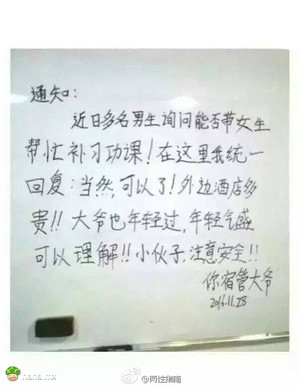 通知:
近日多名男生询问能否带女生
帮忙补习功课!在这里我统一
回复:当然,可以了!外边酒店多
贵!!大爷也年轻过,年轻气盛
可以理解!!小伙子,注意安全!!
你宿管大爷
2016.11.28
nana.mx
@两性指南